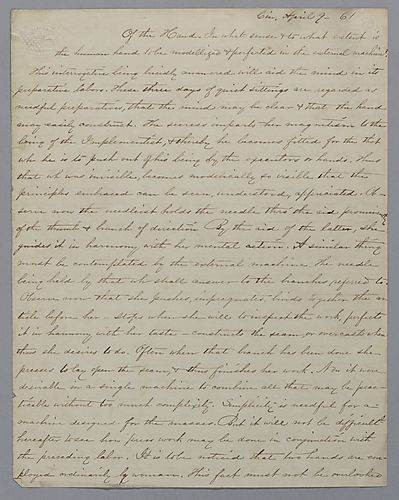 Cin, April 9 - 61
Of the Hand. In what sense & to what extent is
the human hand to be modellized & perfected in the external machine?
This interrogative being lucidly answered will aid the mind in its
preparative labor. These three days of quiet sittings are regarded as
needful preparation, that the mind may be clear & that the hand
may easily construct. The seeress imparts her magnetism to the
being of the Implementist, & thereby he becomes fitted for the that
wh he is to push out of his being by the executors or hands. Thus
that wh was invisible, becomes modelically so visible that the
principles embraced can be seen, understood, appreciated. Ob-
serve now the needleist holds the needle thro' the aid
of the thumb & branch of direction By the aid of the latter, she
guides it in harmony with her mental action. A similar thing
must be contemplated by the external machine. The needle
being held by that wh shall answer to the branches referred to.
Observe now that she pushes, impregnates, binds together the ar-
ticle before her - stops when she will to inspect the work, perfects
it in harmony with her taste - constructs the seam, or overcasts when
thus she desires to do. Often when that branch has been done she
presses to lay open the seam, & thus finishes her work. Now it were
desirable in a single machine to combine all that may be prac-
ticable without too much complexity. Simplicity is needful for a
machine designed for the masses. But it will not be difficult
hereafter to see how press work may be done in conjunction with
the preceding labor. It is to be noticed that two hands are em-
ployed ordinarily by woman. This fact must not be overlooked